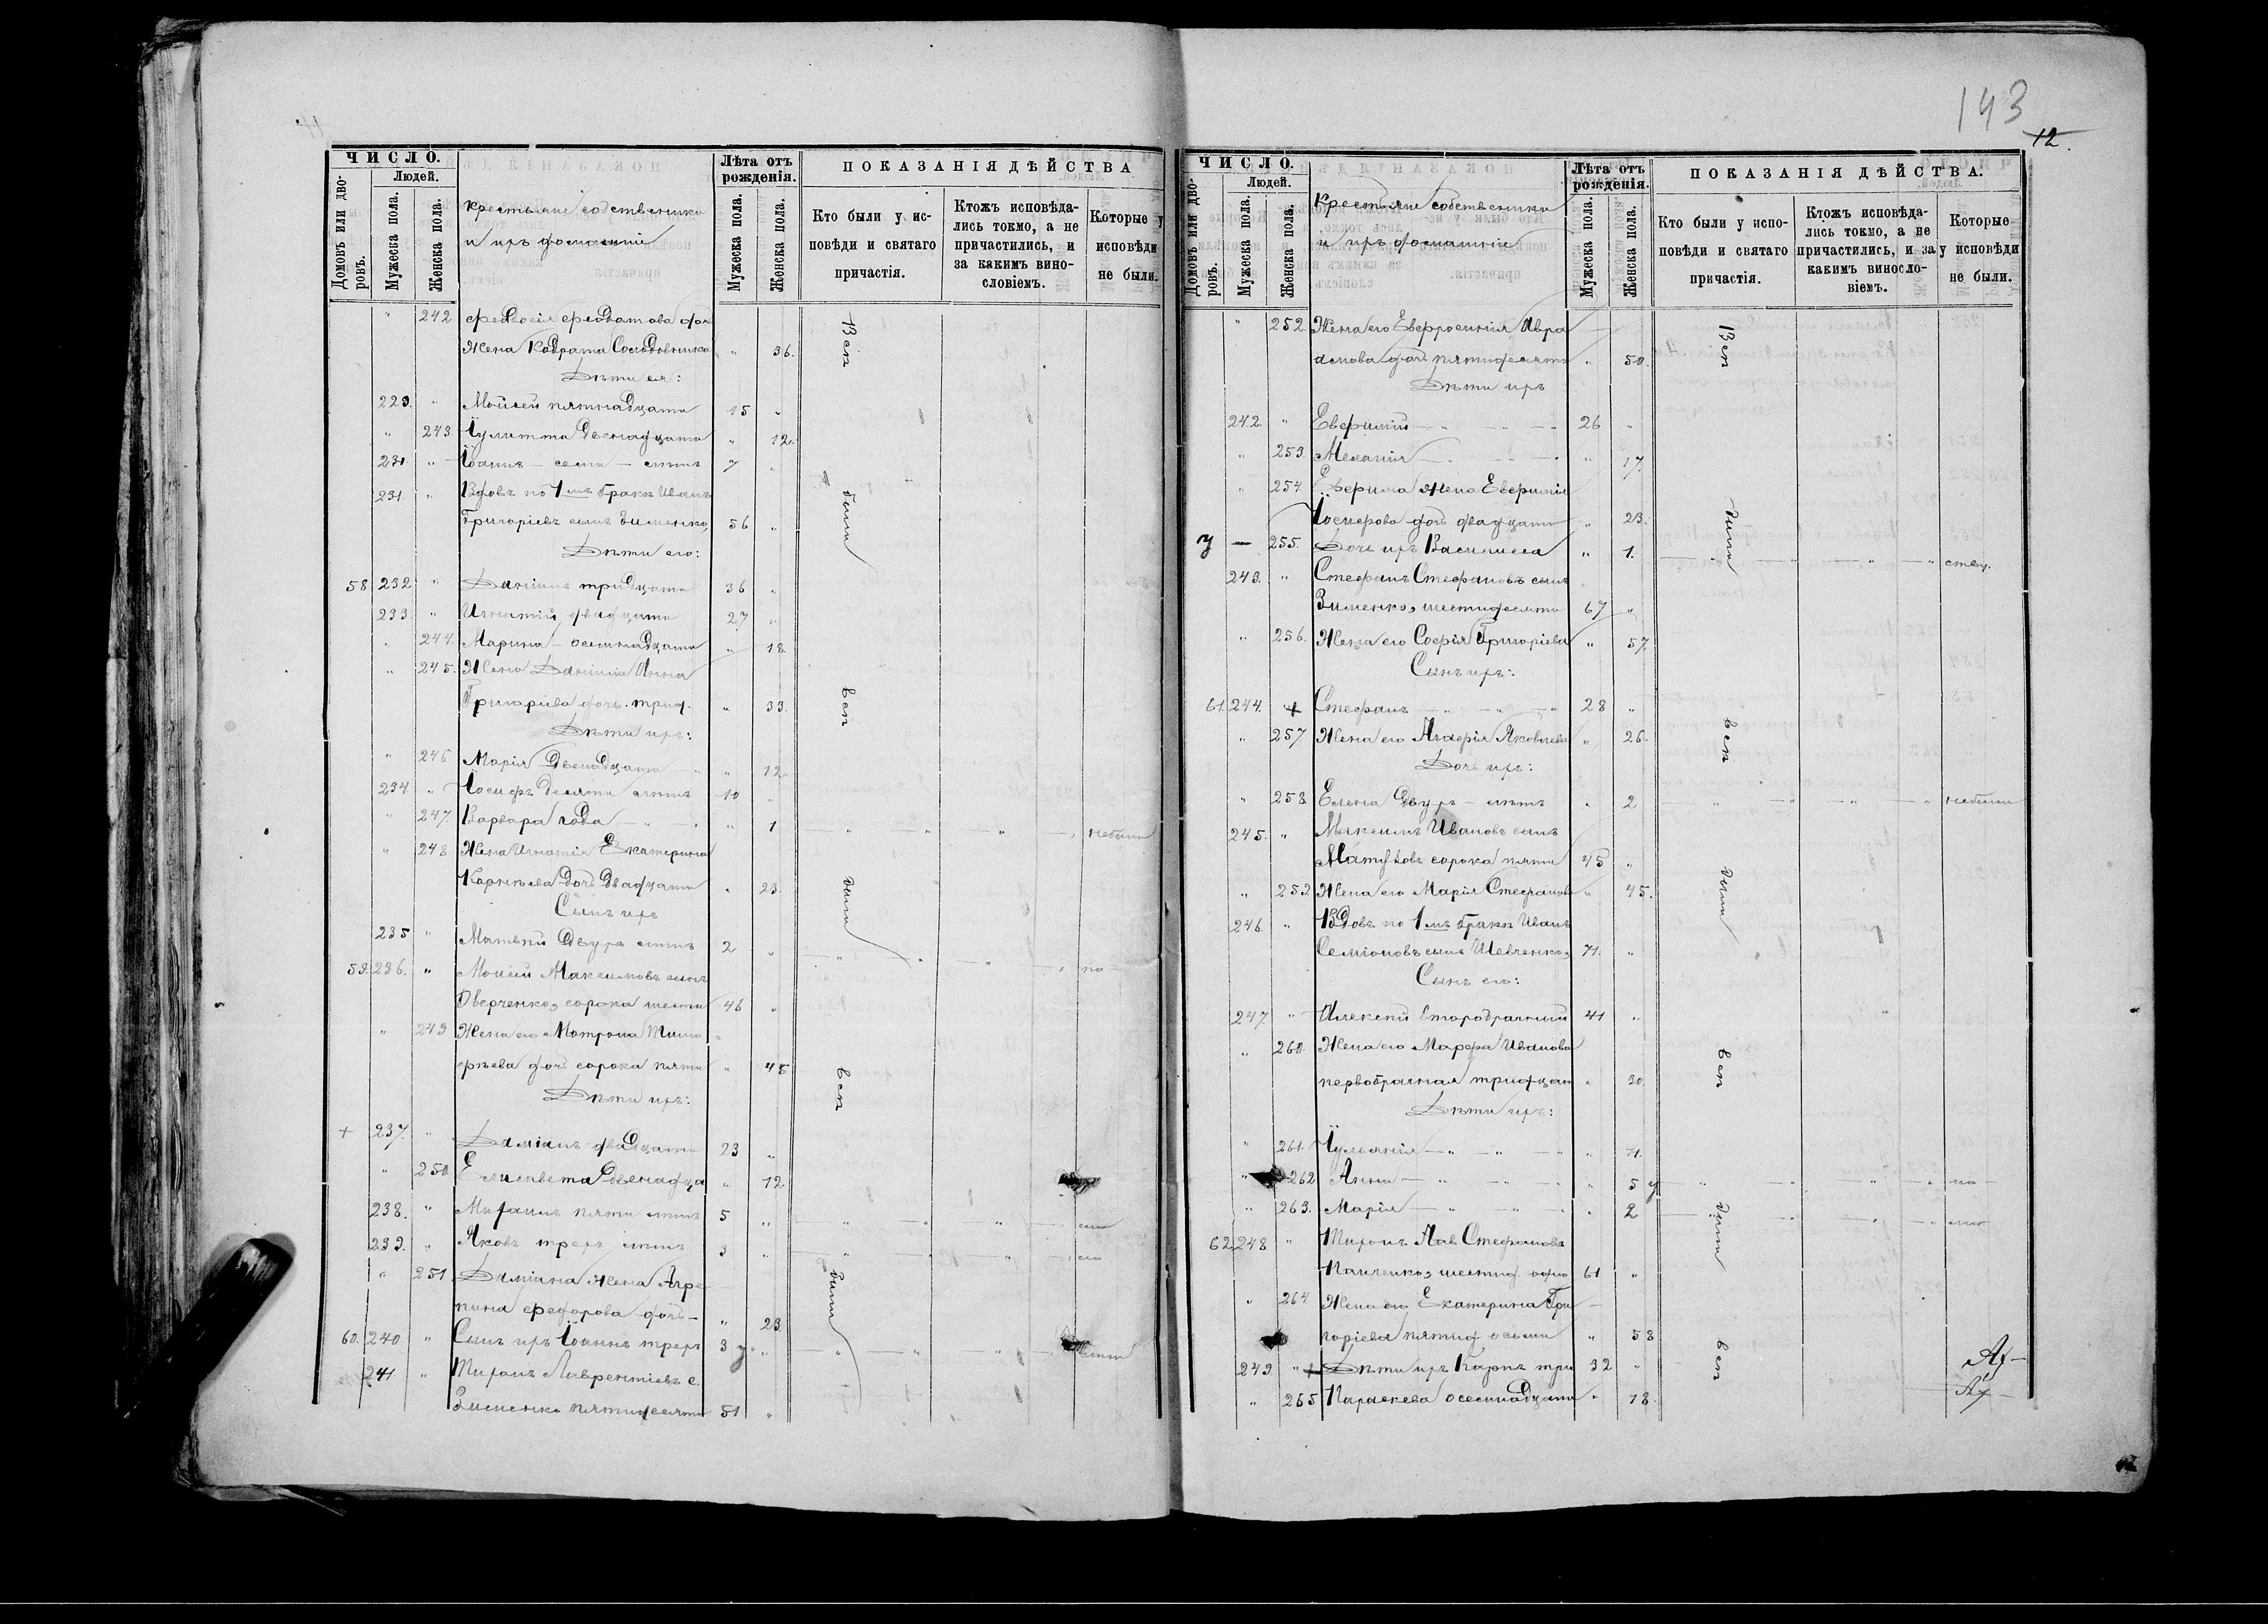 ЧИСЛО.
Людей.
Домовъ или дворовъ.
Мужеска пола.
Женска пола.
Крестьяне собственники
и ихъ домашніе
Лѣта отъ рожденія.
Мужеска пола.
Женска пола.
ПОКАЗАНІЯ ДѢЙСТВА
Кто были у исповѣди и святаго причастія.
Ктожъ исповѣдались токмо, а не причастились, и за какимъ винословіемъ.
Которые у исповѣди не были.
" 242 Ѳеодосія Ѳеодотова доч
Жена Кодрата " 36.
Дѣти ея:
229. " Мойсей пятнадцати 15 "
" 243 Іулитта двенадцати " 12.
230. " Іоаннъ – семи – лѣтъ 7 "
231. " Вдовъ по 1мъ бракѣ Иванъ
Григоріевъ сынъ Зименко, 56 "
Дѣти его:
58 232 " Даніилъ тридцати 36 "
233. " Игнатій двадцати 27 "
" 244. Марина – осемнадцати " 18
" 245. Жена Даніила Анна
Григоріева доч. трид. " 33.
Дѣти ихъ:
" 246 Марія двенадцати " 12
234 " Іосифъ десяти лѣтъ 10 "
" 247. Варвара года " 1 небыли
" 248 Жена Игнатія Екатерина
Корнѣева доч двадцати " 23.
Сынъ ихъ
235 " Матвѣй двухъ лѣтъ 2 "
59. 236. " Моисей Максимовъ сынъ по
сорока шести 46 "
" 249 Жена его Матрона Тимо
ѳѣева доч сорока пяти " 45
Дѣти ихъ:
+ 237. " Даміанъ двадцати 23 "
" 250 Елисавета двенадца " 12
238. " Михаилъ пяти лѣтъ 5 "
239. " Яковъ трехъ лѣтъ 3 "
" 251 Даміана жена Агри
пина Ѳедорова доч – " 23.
60. 240 " Сынъ ихъ Іоаннъ трехъ 3 "
241 " Тихонъ Лаврентіевъ с.
Зименко пятидесяти 51 "
Всѣ
были
всѣ
были
всѣ
были
143
12.
ЧИСЛО.
Людей.
Домовъ или дворовъ.
Мужеска пола.
Женска пола.
Крестьяне собственники
и ихъ домашніе
Лѣта отъ рожденія.
Мужеска пола.
Женска пола.
ПОКАЗАНІЯ ДѢЙСТВА.
Кто были у исповѣди и святаго причастія.
Ктожъ исповѣдались токмо, а не причастились, и за какимъ винословіемъ.
Которые у исповѣди не были.
" 252 Жена его Евфросинія Авра
амова доч пятидесяти " 50.
Дѣти ихъ
242 " Евфимій 26 "
" 253. Меланія " 17.
" 254 жена Евфимія
Іосифова доч двадцати " 23.
255. Дочь ихъ Василисса " 1.
243. " Стефанъ Стефановъ сынъ
Зименко, шестидесяти 67 "
" 256. Жена его Софія Григоріева " 57.
Сынъ ихъ:
61. 244. + Стефанъ 28 "
" 257 Жена его Агафія Яковлева " 26.
Дочь ихъ:
" 258 Елена двухъ – лѣтъ " 2 небыли
245. " Максимъ Ивановъ сынъ
сорока пяти 45 "
" 259. Жена его Марія Стефанова " 45.
246. " Вдовъ по 1мъ бракѣ Иванъ
Семіоновъ сынъ Шевченко, 71. "
Сынъ его:
247 " Алексѣй второбрачный 41 "
" 260. Жена его Марфа Иванова
первобрачная тридцат " 30.
Дѣти ихъ:
" 261. Іуліанія " 7.
" 262 Анна " 5 по
" 263. Марія " 2
62 248 " Тихонъ Стефановъ
Панченко, шестид. одно 61 "
" 264 Жена его Екатерина Гри
горіева пятид. осьми " 58
249 " Дѣти ихъ Карпъ три 32 "
" 265 Параскева осемнадцати " 18.
Всѣ
были
всѣ
были
всѣ
были
всѣ